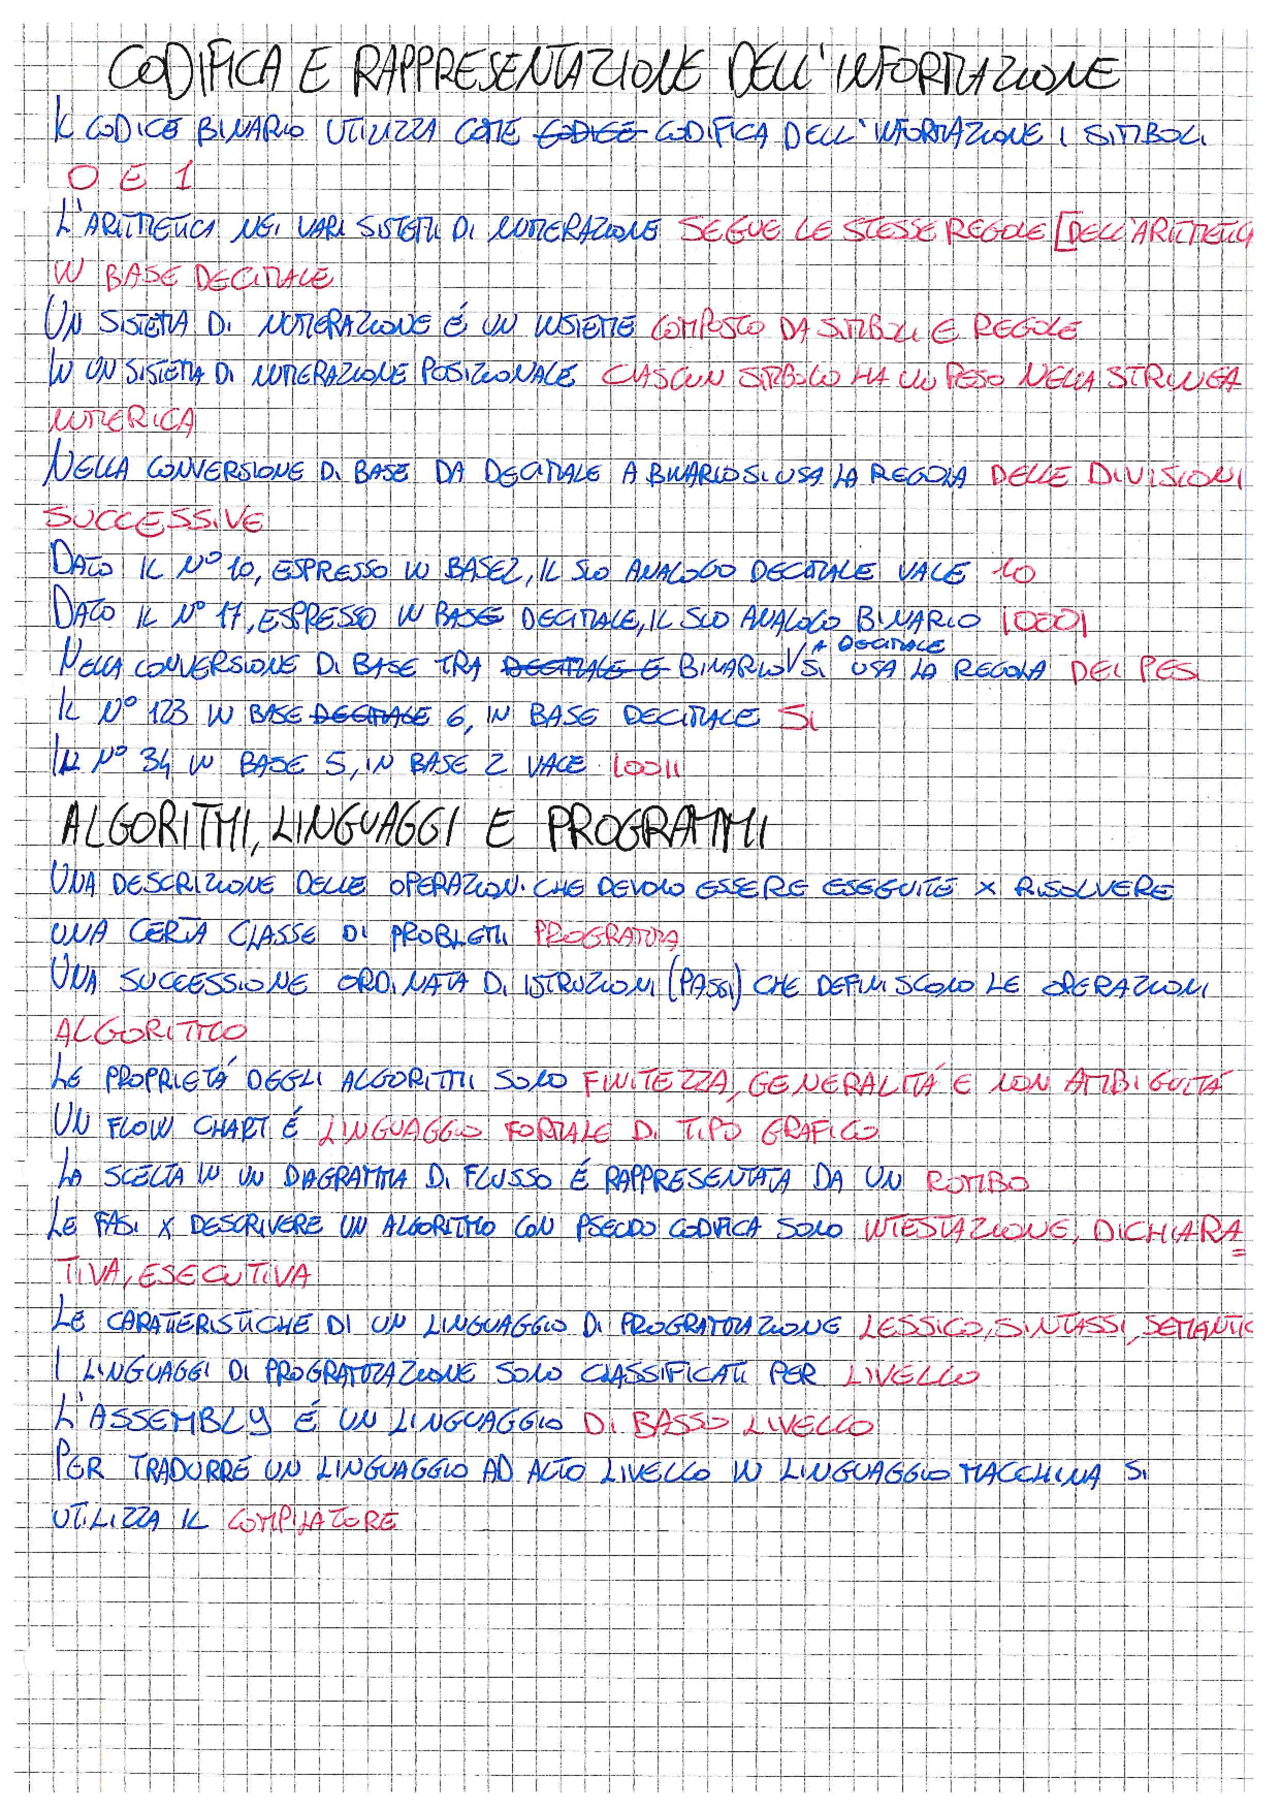 CODIFICA E RAPPRESENTAZIONE DELL'INFORMAZIONE
IL CODICE BINARIO UTILIZZA COME CODICE CODIFICA DELL'INFORMAZIONE I SIMBOLI
0 E 1
L'ARITMETICA NEI VARI SISTEMI DI NUMERAZIONE SEGUE LE STESSE REGOLE [DELL'ARITMETICA
IN BASE DECIMALE
UN SISTEMA DI NUMERAZIONE É UN INSIEME COMPOSTO DA SIMBOLI E REGOLE
IN UN SISTEMA DI NUMERAZIONE POSIZIONALE CIASCUN SIMBOLO HA UN PESO NELLA STRINGA
NUMERICA
NELLA CONVERSIONE DI BASE DA DECIMALE A BINARIO SI USA LA REGOLA DELLE DIVISIONI
SUCCESSIVE
DATO IL N° 10, ESPRESSO IN BASE 2, IL SUO ANALOGO DECIMALE VALE 10
DATO IL N° 17, ESPRESSO IN BASE DECIMALE, IL SUO ANALOGO BINARIO 10001
NELLA CONVERSIONE DI BASE TRA DECIMALE E BINARIO V A DECIMALE SI USA LA REGOLA DEI PESI
IL N° 123 IN BASE DECIMALE 6, IN BASE DECIMALE 51
IL N° 34 IN BASE 5, IN BASE 2 VALE 10011
ALGORITMI, LINGUAGGI E PROGRAMMI
UNA DESCRIZIONE DELLE OPERAZIONI CHE DEVONO ESSERE ESEGUITE X RISOLVERE
UNA CERTA CLASSE DI PROBLEMI PROGRAMMA
UNA SUCCESSIONE ORDINATA DI ISTRUZIONI (PASSI) CHE DEFINISCONO LE OPERAZIONI
ALGORITMO
LE PROPRIETÁ DEGLI ALGORITMI SONO FINITEZZA, GENERALITÁ E NON AMBIGUITÁ
UN FLOW CHART É LINGUAGGIO FORMALE DI TIPO GRAFICO
LA SCELTA IN UN DIAGRAMMA DI FLUSSO É RAPPRESENTATA DA UN ROMBO
LE FASI X DESCRIVERE UN ALGORITMO CON PSEUDO CODIFICA SONO INTESTAZIONE, DICHIARA=
TIVA, ESECUTIVA
LE CARATTERISTICHE DI UN LINGUAGGIO DI PROGRAMMAZIONE LESSICO, SINTASSI, SEMANTIC
I LINGUAGGI DI PROGRAMMAZIONE SONO CLASSIFICATI PER LIVELLO
L'ASSEMBLY É UN LINGUAGGIO DI BASSO LIVELLO
PER TRADURRE UN LINGUAGGIO AD ALTO LIVELLO IN LINGUAGGIO MACCHINA SI
UTILIZZA IL COMPILATORE